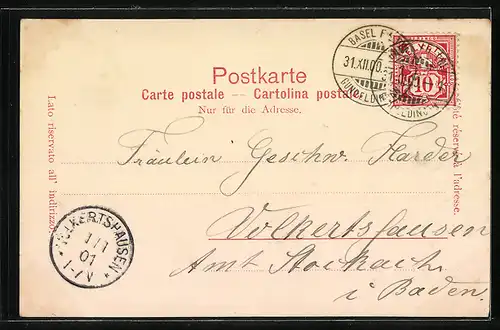 Postkarte
Carte postale — Cartolina postale
Nur für die Adresse.
Lato riservato all indirizzo.
réservé à l'adresse.
BASEL
31.XII.00
GUNDELDINGEN
10
Fräulein Geschw. Harder
Volkertshausen
Amt Stockach
i Baden.
VOLKERTSHAUSEN
1/1
01